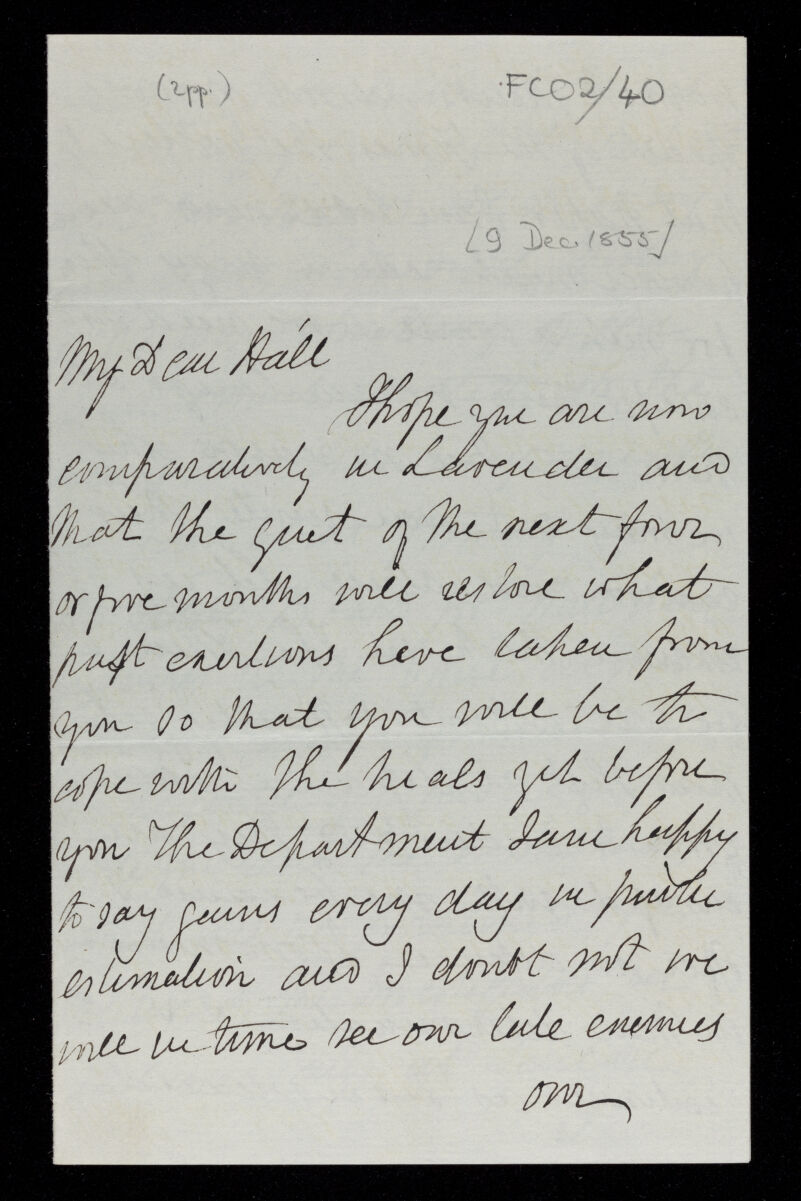 (2pp.) FCO2/40
[9 Dec. 1855]
My Dear Hall
I hope you are now
comparatively in Lavender and
that the quiet of the next four
or five months will restore what
past exertions have taken from
you so that you will be to
cope with the trials yet before
you The Department I am happy
to say gains every day in public
estimation and I doubt not we
will in time see our late enemies
our